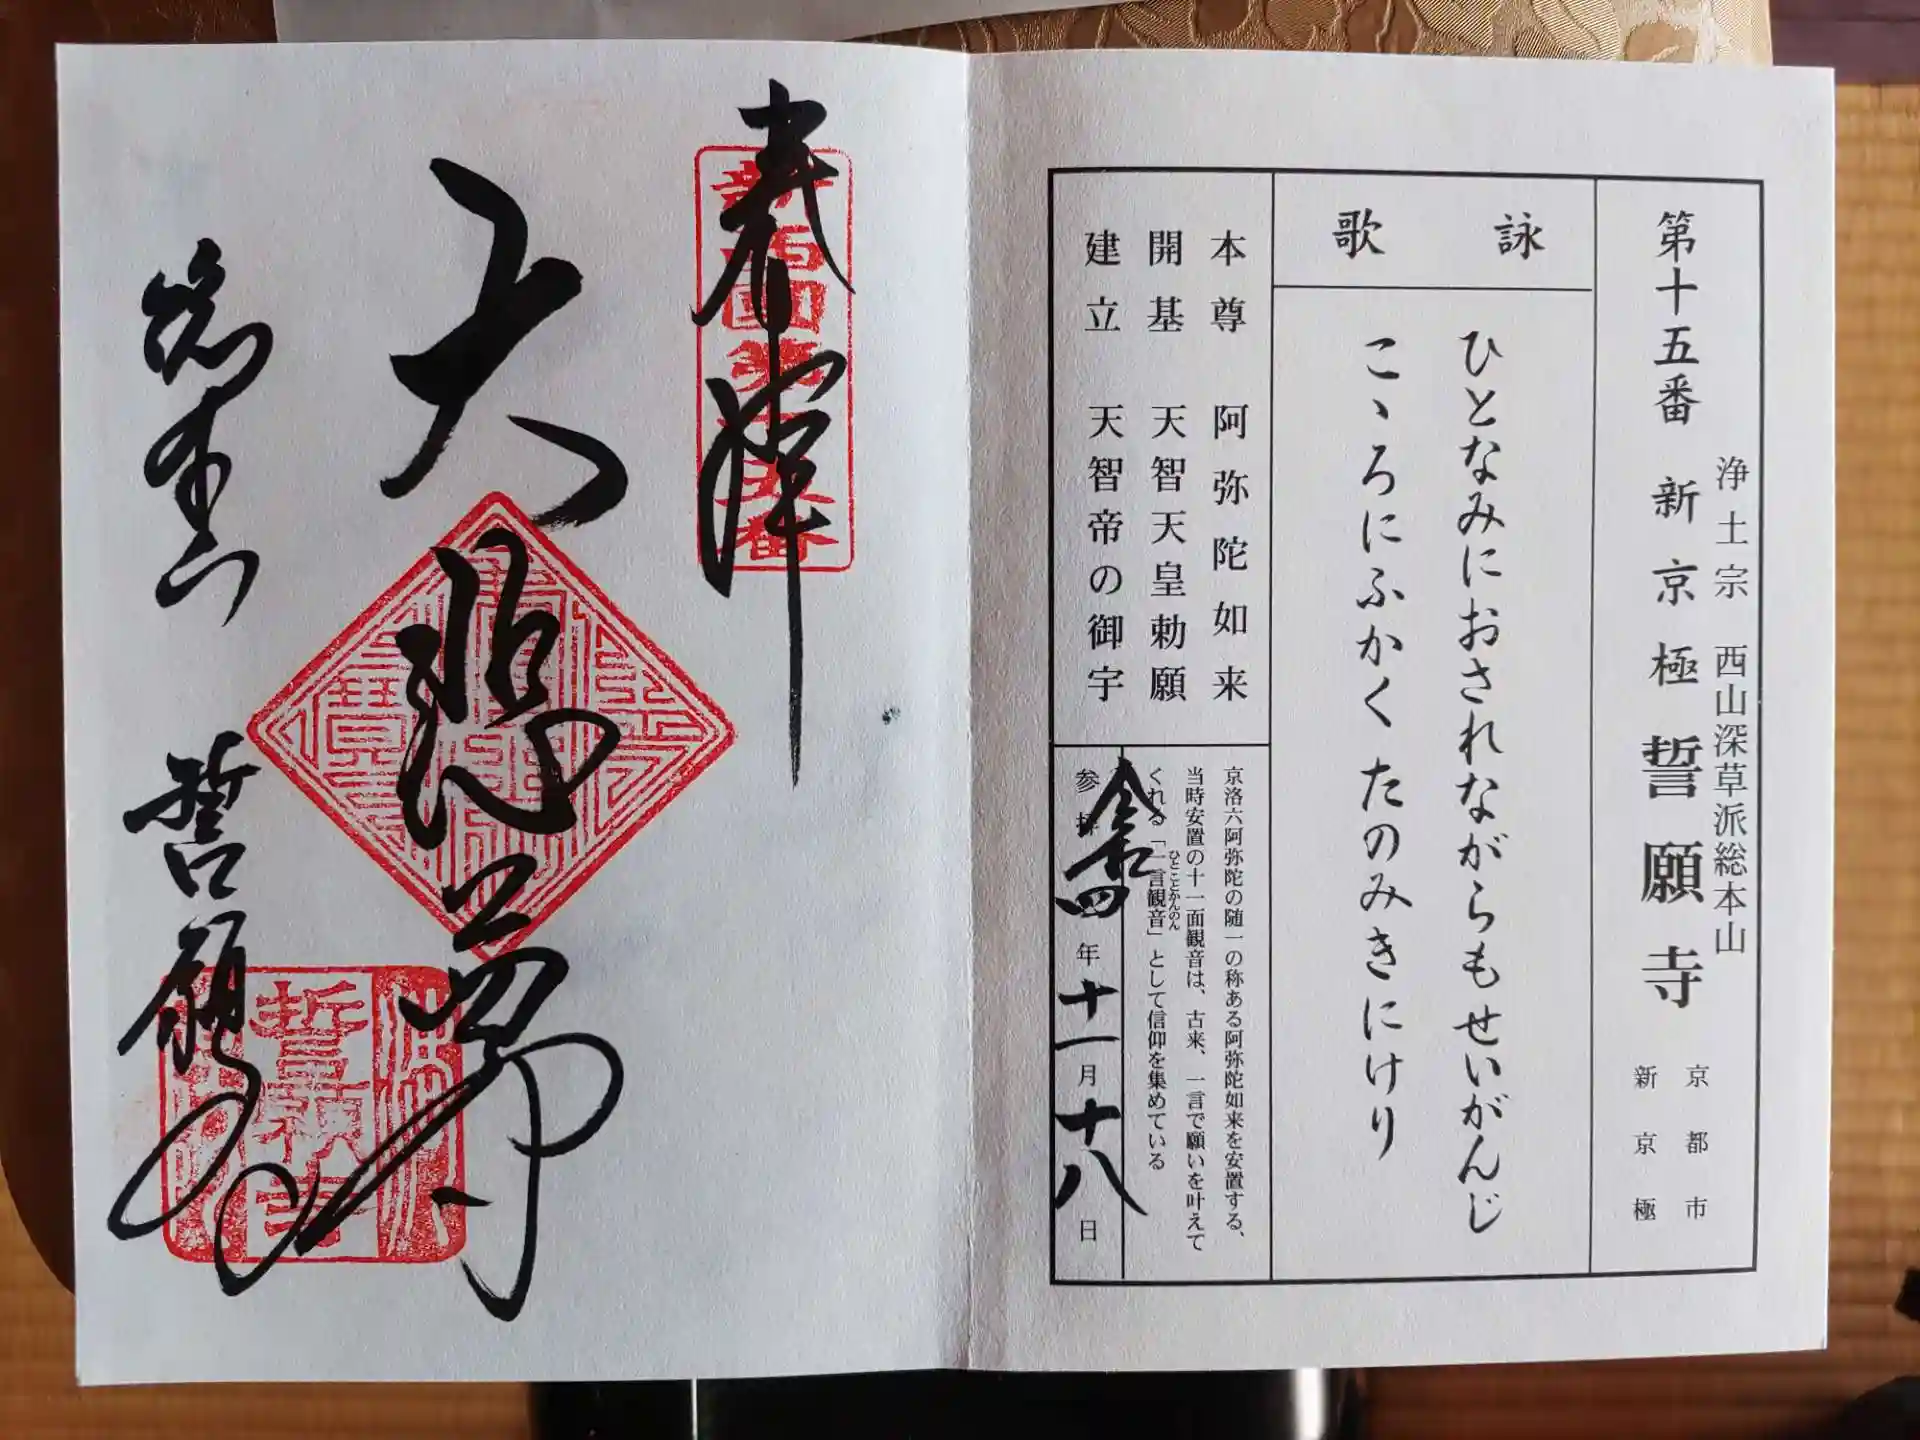 浄土宗 西山深草派総本山
第十五番 新京極 誓願寺
京都市
新京極
詠歌
ひとなみにおされながらもせいがんじ
こゝろにふかくたのみきにけり
本尊 阿弥陀如来
開基 天智天皇勅願
建立 天智帝の御宇
京洛六阿弥陀の随一の称ある阿弥陀如来を安置する、
当時安置の十一面観音は、古来、一言で願いを叶えて
ひとことかんのん
くれる「一言観音」として信仰を集めている
参拝 令和四年十一月十八日
奉拝
大悲尊
総本山 誓願寺
誓願寺